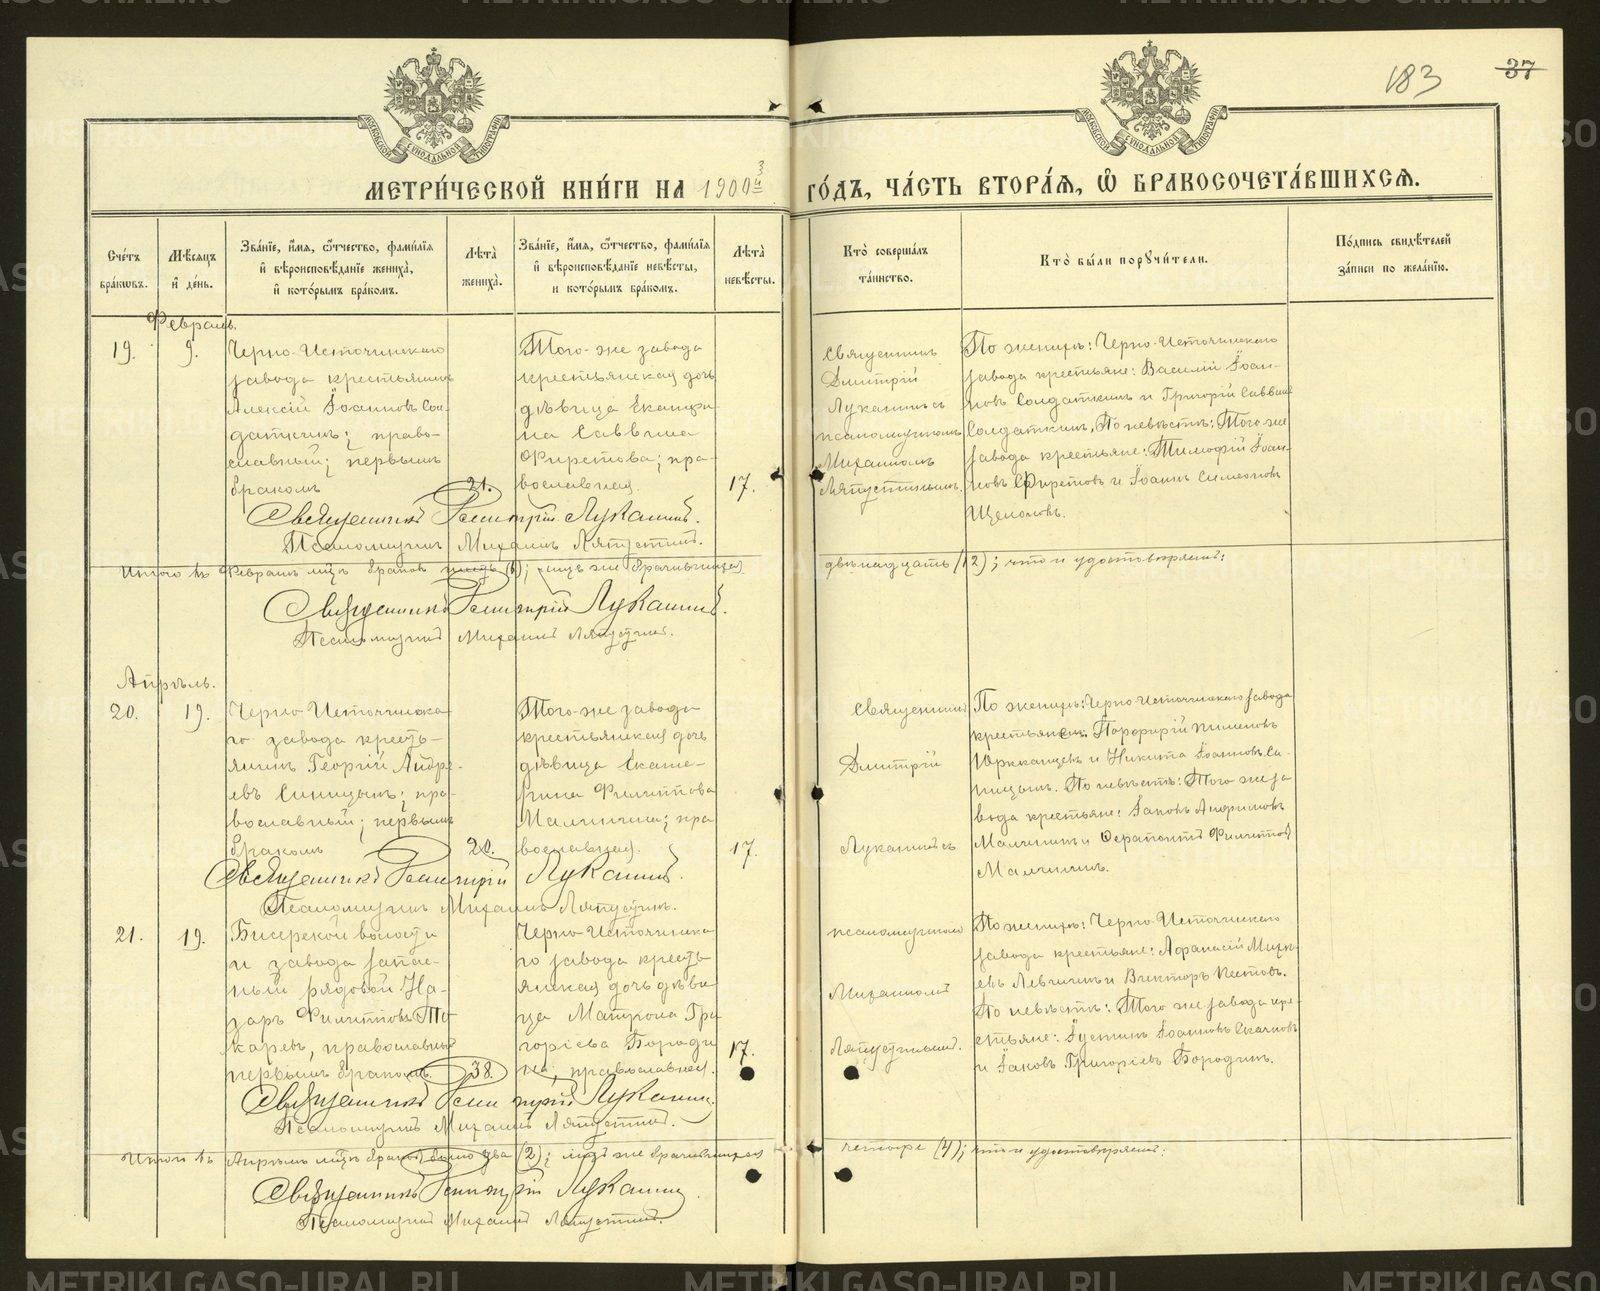 METRIKI.GASO-URAL.RU
183
37
МОСКОВСКОЙ СѴНОДАЛЬНОЙ ТИПОГРАФІИ
МОСКОВСКОЙ СѴНОДАЛЬНОЙ ТИПОГРАФІИ
МЕТРИ́ЧЕСКОЙ КНИ́ГИ НА 1900й 3 ГО́ДЪ, ЧА́СТЬ ВТОРА́Я, Ѽ БРАКОСОЧЕТА́ВШИХСЯ.
Сче́тъ бра́кѡвъ.
Мѣ́сяцъ и҆ де́нь.
Зва́нїе, и҆́мя, ѻ҆́тчество, фами́лїя и҆ вѣроисповѣ́данїе жениха̀, и҆ кото́рымъ бра́комъ.
Лѣта̀ жениха̀.
Зва́нїе, и҆́мя, ѻ҆́тчество, фами́лїя и҆ вѣроисповѣ́данїе невѣ́сты, и кото́рымъ бра́комъ.
Лѣта̀ невѣ́сты.
Кто̀ соверша́лъ та́инство.
Кто̀ бы́ли порꙋчи́тели.
По́дпись свидѣ́телей за́писи по жела́нїю.
Февраль.
19.
9.
Черно-Источинскаго
завода крестьянинъ
Алексій Іоанновъ Сол-
даткинъ; право-
славный; первымъ
бракомъ
21.
Того-же завода
крестьянская дочь
дѣвица Екатери-
на Саввина
Фирстова; пра-
вославная.
17.
Священникъ
Дмитрій
Лукинъ съ
псаломщикомъ
Михаиломъ
Ляпустинымъ.
По женихѣ: Черно-Источинскаго
завода крестьяне: Василій Іоан-
новъ Солдаткинъ и Григорій Саввинъ
Солдаткинъ, По невѣстѣ: Того же
завода крестьяне: Тимофій Іоан-
новъ Фирстовъ и Іоаннъ Симеоновъ
Щелоковъ.
Священникъ Дмитрій Луканинъ.
Псаломщикъ Михаилъ Ляпустинъ.
Итого въ Февралѣ мцѣ браковъ шесть (6); лицъ же брачившихся двѣнадцать (12); что и удостовѣряемъ:
Священникъ Дмитрій Луканинъ.
Псаломщикъ Михаилъ Ляпустинъ.
Апрѣль.
20.
19.
Черно-Источинска-
го завода кресть-
янинъ Георгій Андре-
евъ Синицынъ; пра-
вославный; первымъ
бракомъ
20.
Того-же завода
крестьянская дочь
дѣвица Екате-
рина Филиппова
Малинина; пра
вославная.
17.
Священникъ
Дмитрій
Луканинъ съ
По женихѣ: Черно-Источинскаго завода
крестьяне: Порфирій Пименовъ
и Никита Іоанновъ Си-
ницынъ. По невѣстѣ: Того же за
вода крестьяне: Іаковъ
Малининъ и Ферапонтъ Филипповъ
Малининъ.
Священникъ Дмитрій Луканинъ.
Псаломщикъ Михаилъ Ляпустинъ.
21.
19.
Бисерской волости
и завода запас-
ный рядовой На-
заръ Филипповъ То-
каревъ, православный
первымъ бракомъ.
38.
Черно-Источинска
го завода кресть
янская дочь дѣви
ца Матрона Гри
горіева Бороди
на, православная.
17.
псаломщикомъ
Михаиломъ
Ляпустинымъ.
По женихѣ: Черно-Источинскаго
завода крестьяне: Афанасій
и Викторъ Пестовъ.
По невѣстѣ: Того же завода кре-
стьяне: Іустинъ Іоанновъ Скачковъ
и Іаковъ Григоріевъ Бородинъ.
Священникъ Дмитрій Луканинъ.
Псаломщикъ Михаилъ Ляпустинъ.
Итого въ Апрѣлѣ мцѣ браковъ было два (2); лицъ же брачившихся четыре (4); что и удостовѣряемъ:
Священникъ Дмитрій Луканинъ.
Псаломщикъ Михаилъ Ляпустинъ.
METRIKI.GASO-URAL.RU
METRIKI.GASO-URAL.RU
METRIKI.GASO